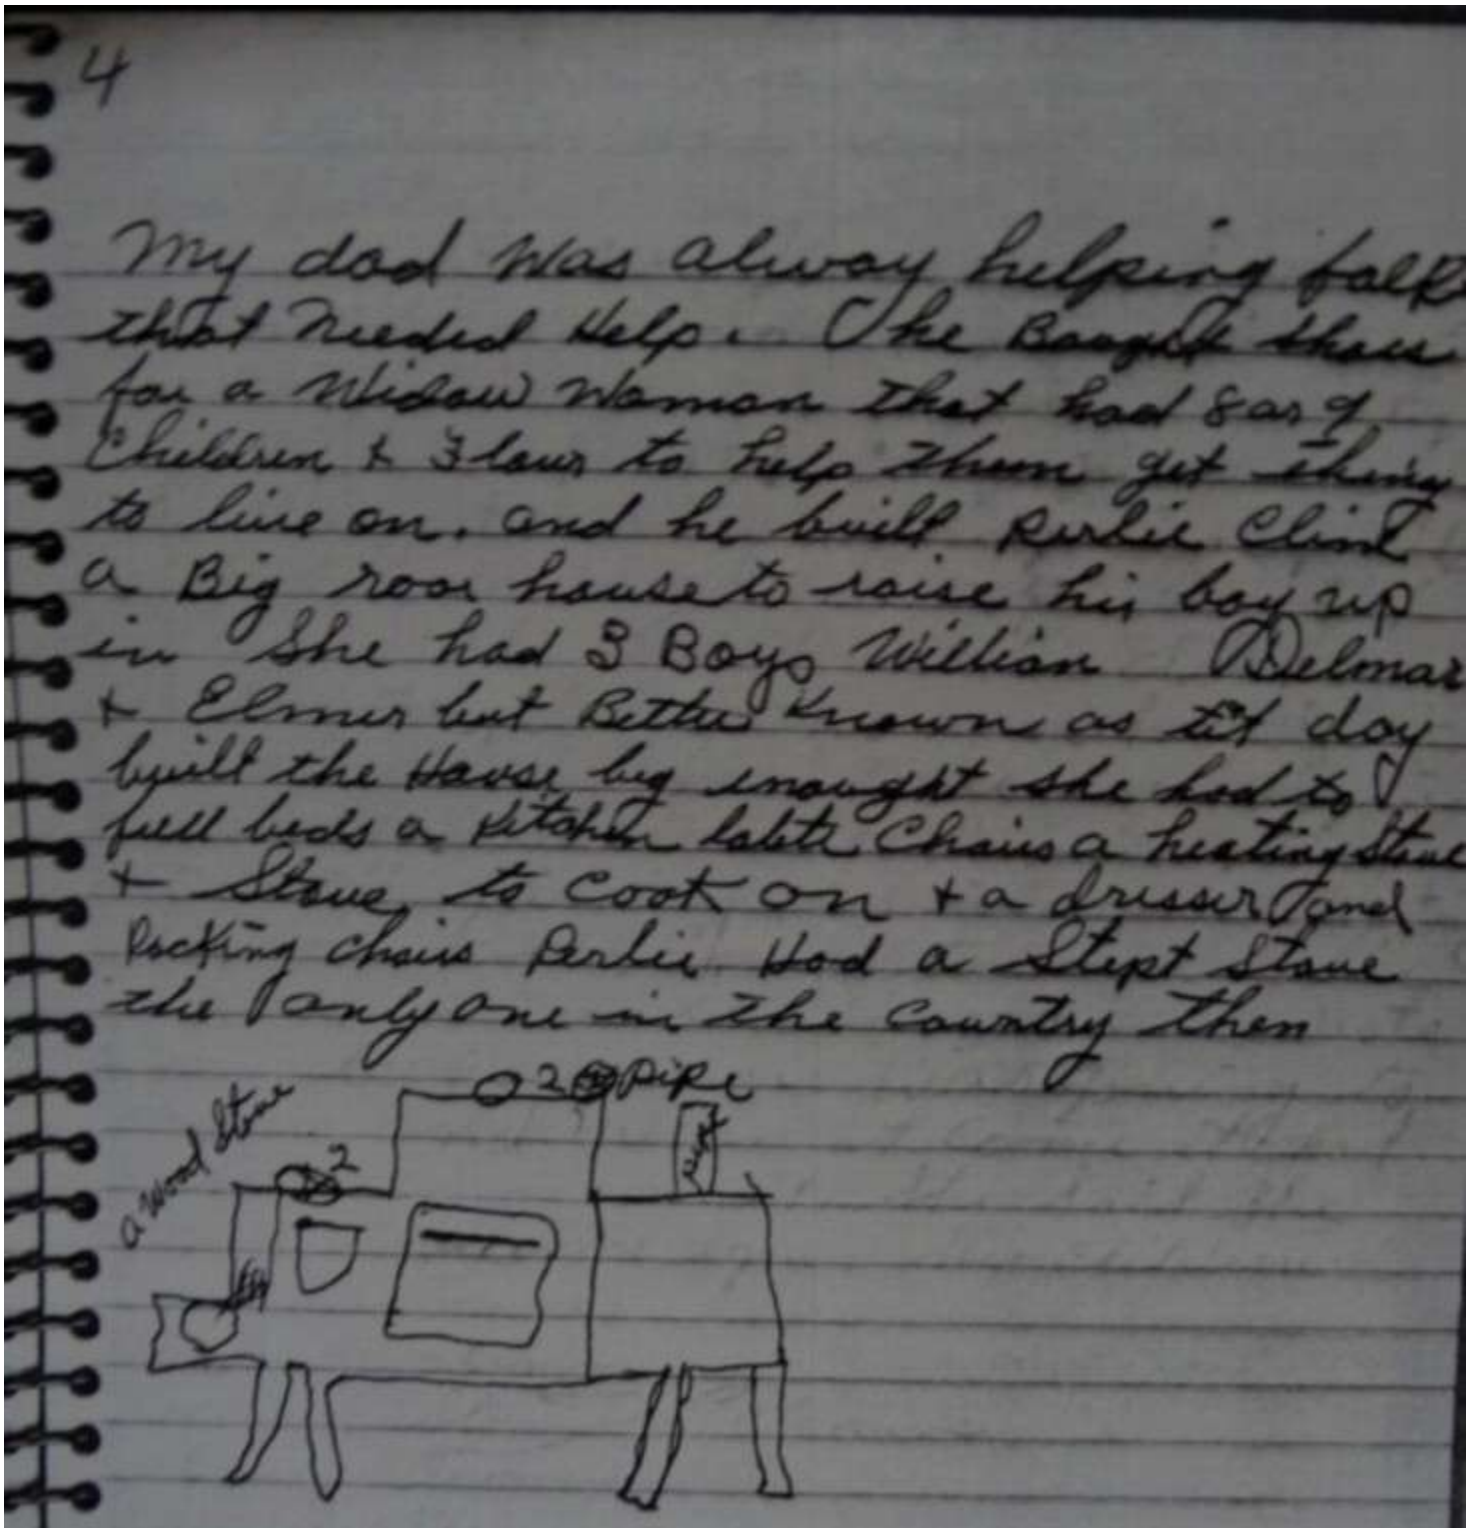 4
My dad was alway helping folk
that needed Help. he Bought shoes
for a Widow Woman that had 8 or 9
Children & Flour to help them get thing
to live on. and he built Perlie Cline
a Big room house to raise his boy up
in She had 3 Boys William Delmar
& Elmer but Better Known as tit day
built the House big enought she had to
full beds a kitchen table Chairs a heating Stove
& Stove to Cook on & a dresser and
Rocking chairs Perlie Had a Stept Stove
the only one in the Country then
a wood Stove
2
2 pipe